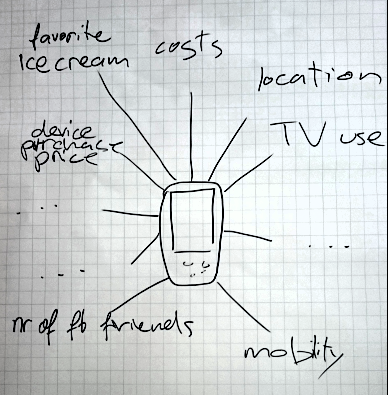 favorite
ice cream
costs
location
TV use
device
purchase
price
...
...
...
nr of fb friends
mobility